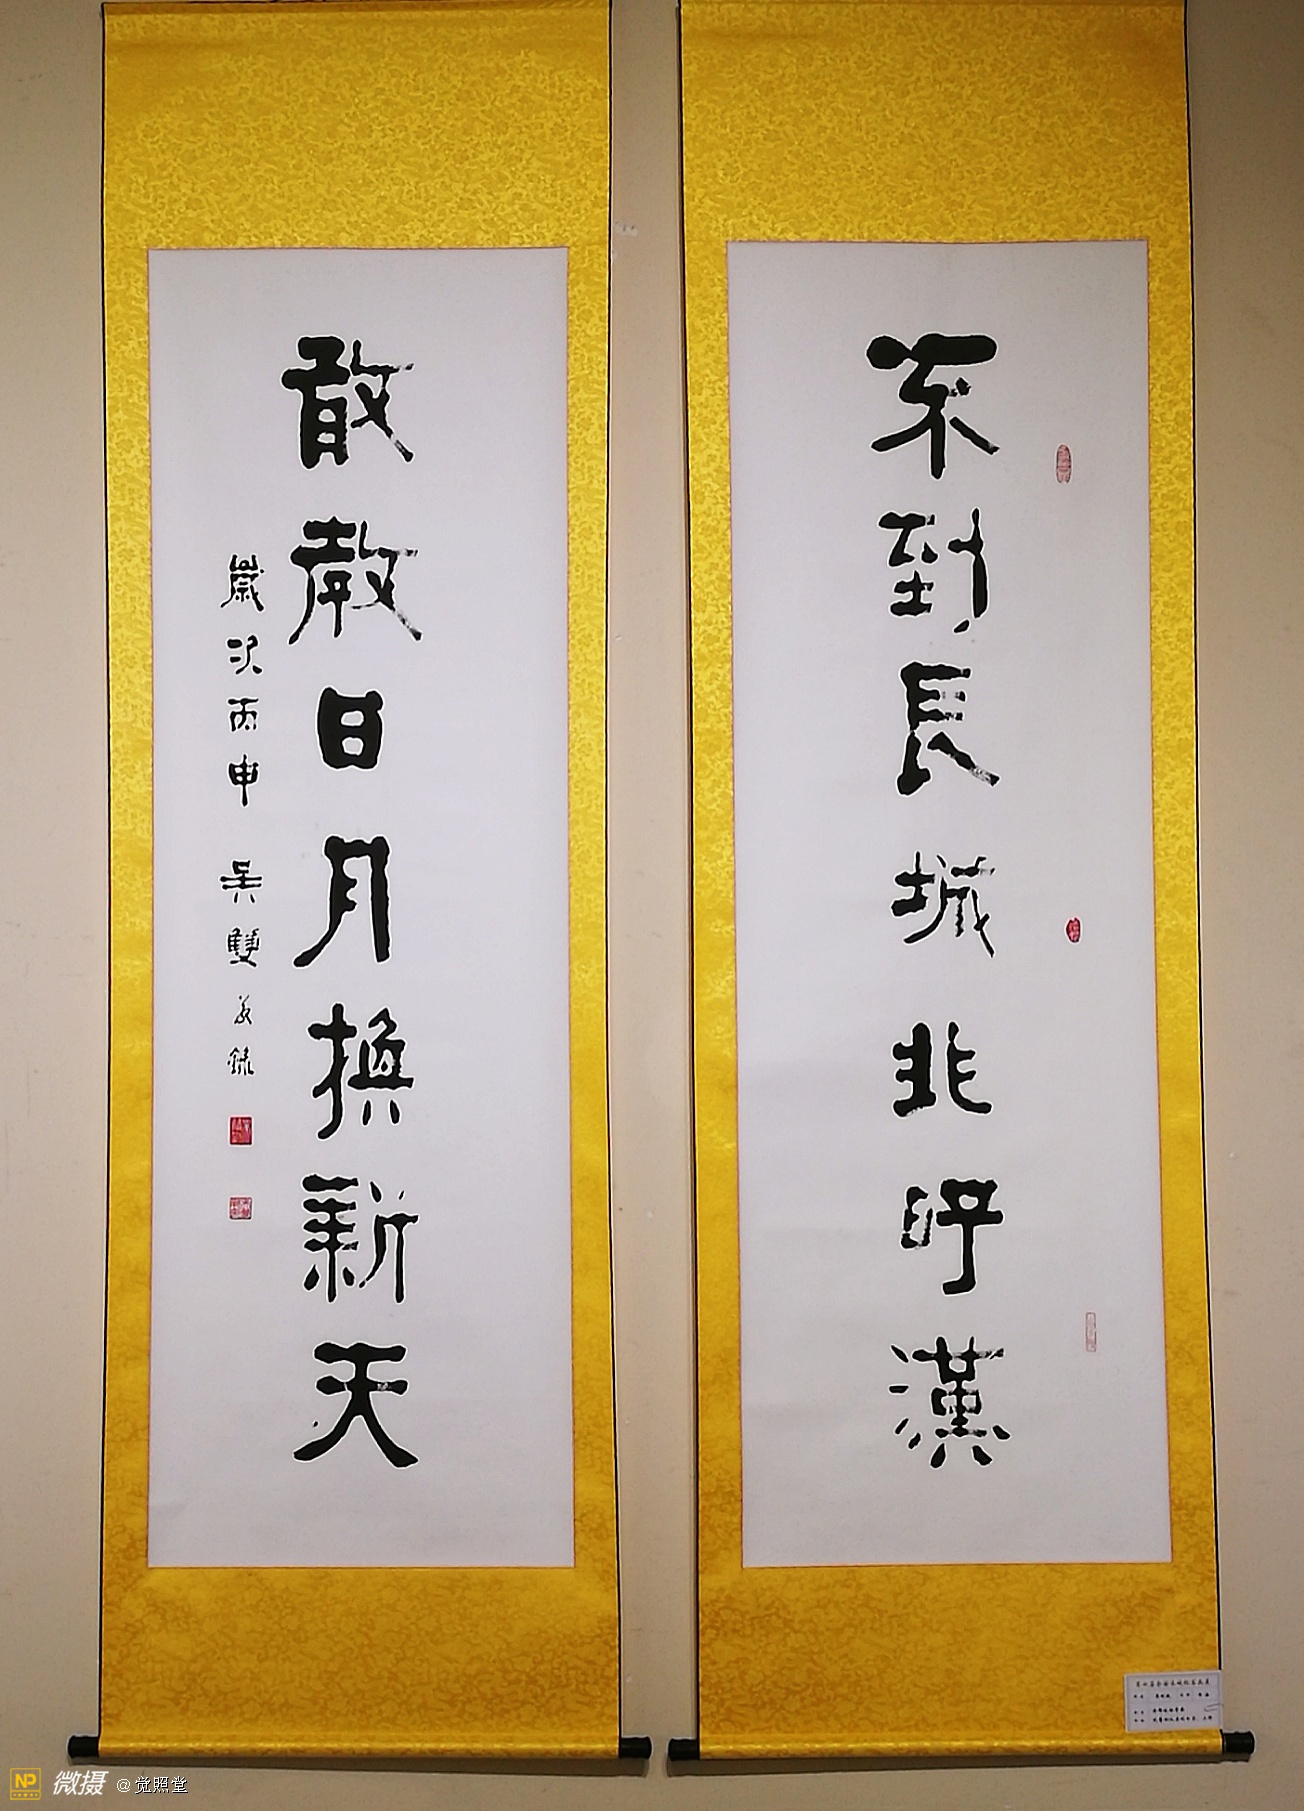 不到長城非好漢
敢教日月換新天
歲次丙申 吳雙
錄
NP 微摄 @觉照堂